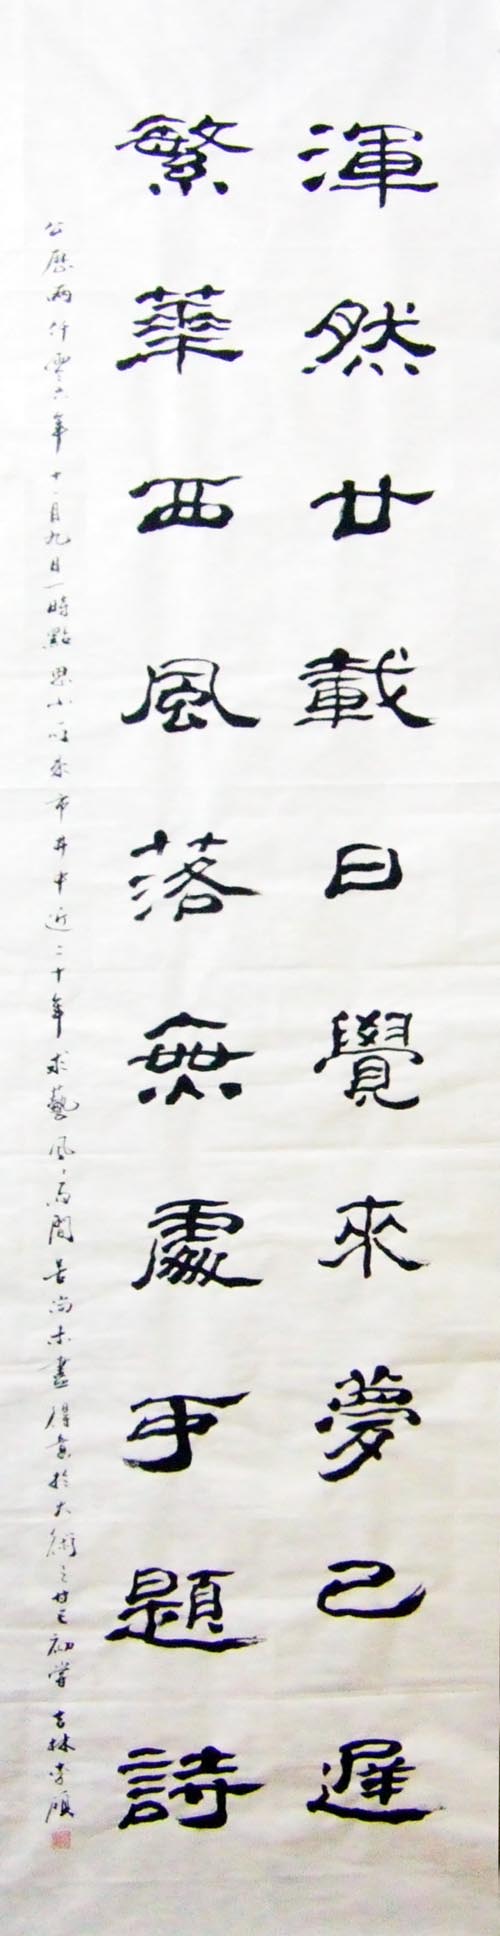 渾然廿載日覺來夢已遲
繁華西風落無處爭題詩
公歷兩仟零六年十一月九日一時點思小可來市井中近二十年求藝風高間苦尚未盡得意於大術之甘已初嘗吉林李碩